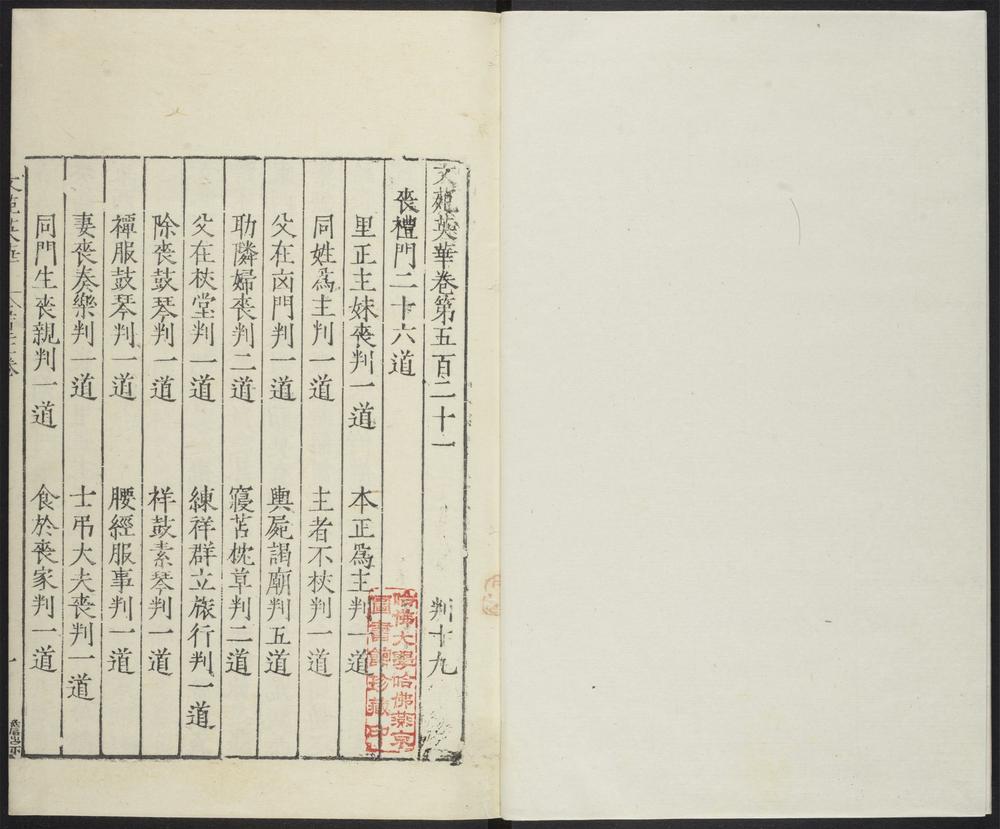 文苑英華卷第五百二十一 判十九
喪禮門二十六道
里正主妹喪判一道 本正爲主判一道
同姓爲主判一道 主者不杖判一道
父在啇門判一道 輿屍謁廟判五道
助隣婦喪判二道 寢苫枕草判二道
父在杖堂判一道 練祥群立旅行判一道
除喪鼓琴判一道 祥鼓素琴判一道
禫服鼓琴判一道 腰絰服事判一道
妻喪奏樂判一道 士弔大夫喪判一道
同門生喪親判一道 食於喪家判一道
哈佛大學哈佛燕京
圖書館珍藏印